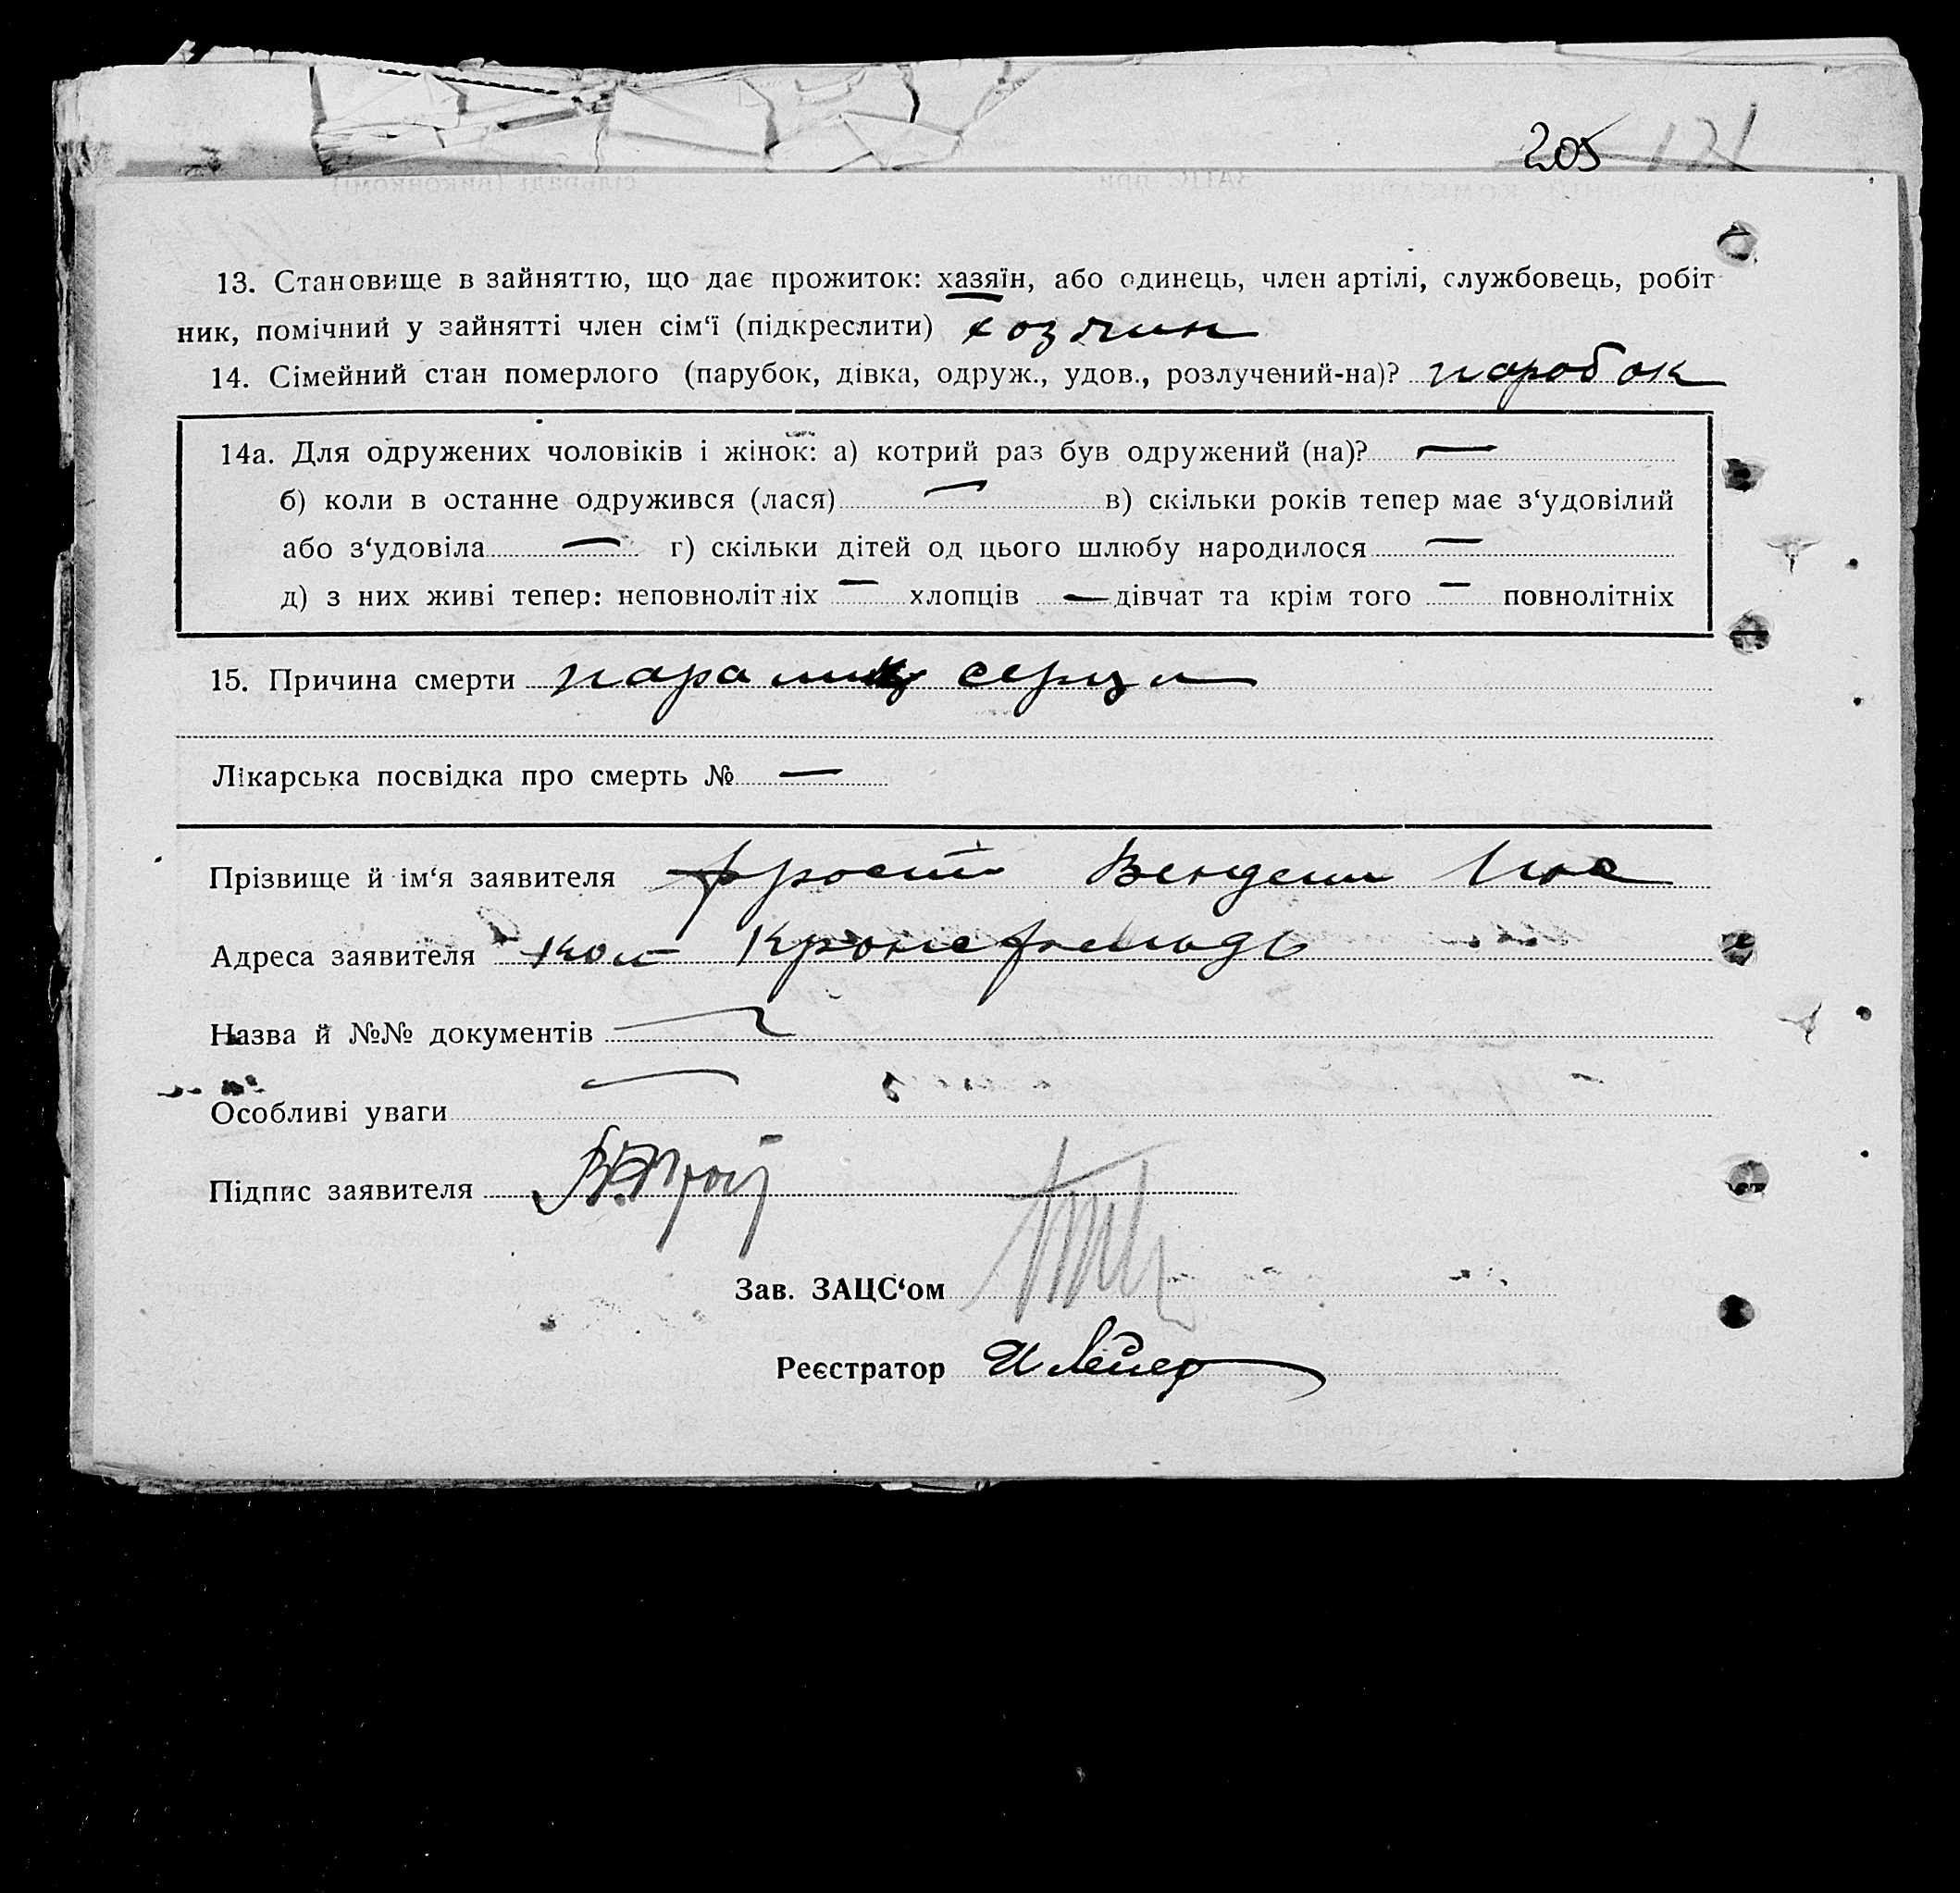 205 121
13. Становище в зайняттю, що дає прожиток: хазяїн, або одинець, член артілі, службовець, робіт-
ник, помічний у зайнятті член сім‘ї (підкреслити) хозяин
14. Сімейний стан померлого (парубок, дівка, одруж., удов., розлучений-на)? паробок
14а. Для одружених чоловіків і жінок: а) котрий раз був одружений (на)? —
б) коли в останнє одружився (лася) — в) скільки років тепер має з‘удовілий
або з‘удовіла — г) скільки дітей од цього шлюбу народилося —
д) з них живі тепер: неповнолітніх — хлопців — дівчат та крім того — повнолітніх
15. Причина смерти паралич серца
Лікарська посвідка про смерть № —
Прізвище й ім‘я заявителя Фрост Венделин
Адреса заявителя кол Кронефельдь
Назва й №№ документів —
Особливі уваги —
Підпис заявителя
Зав. ЗАЦС‘ом
Реєстратор